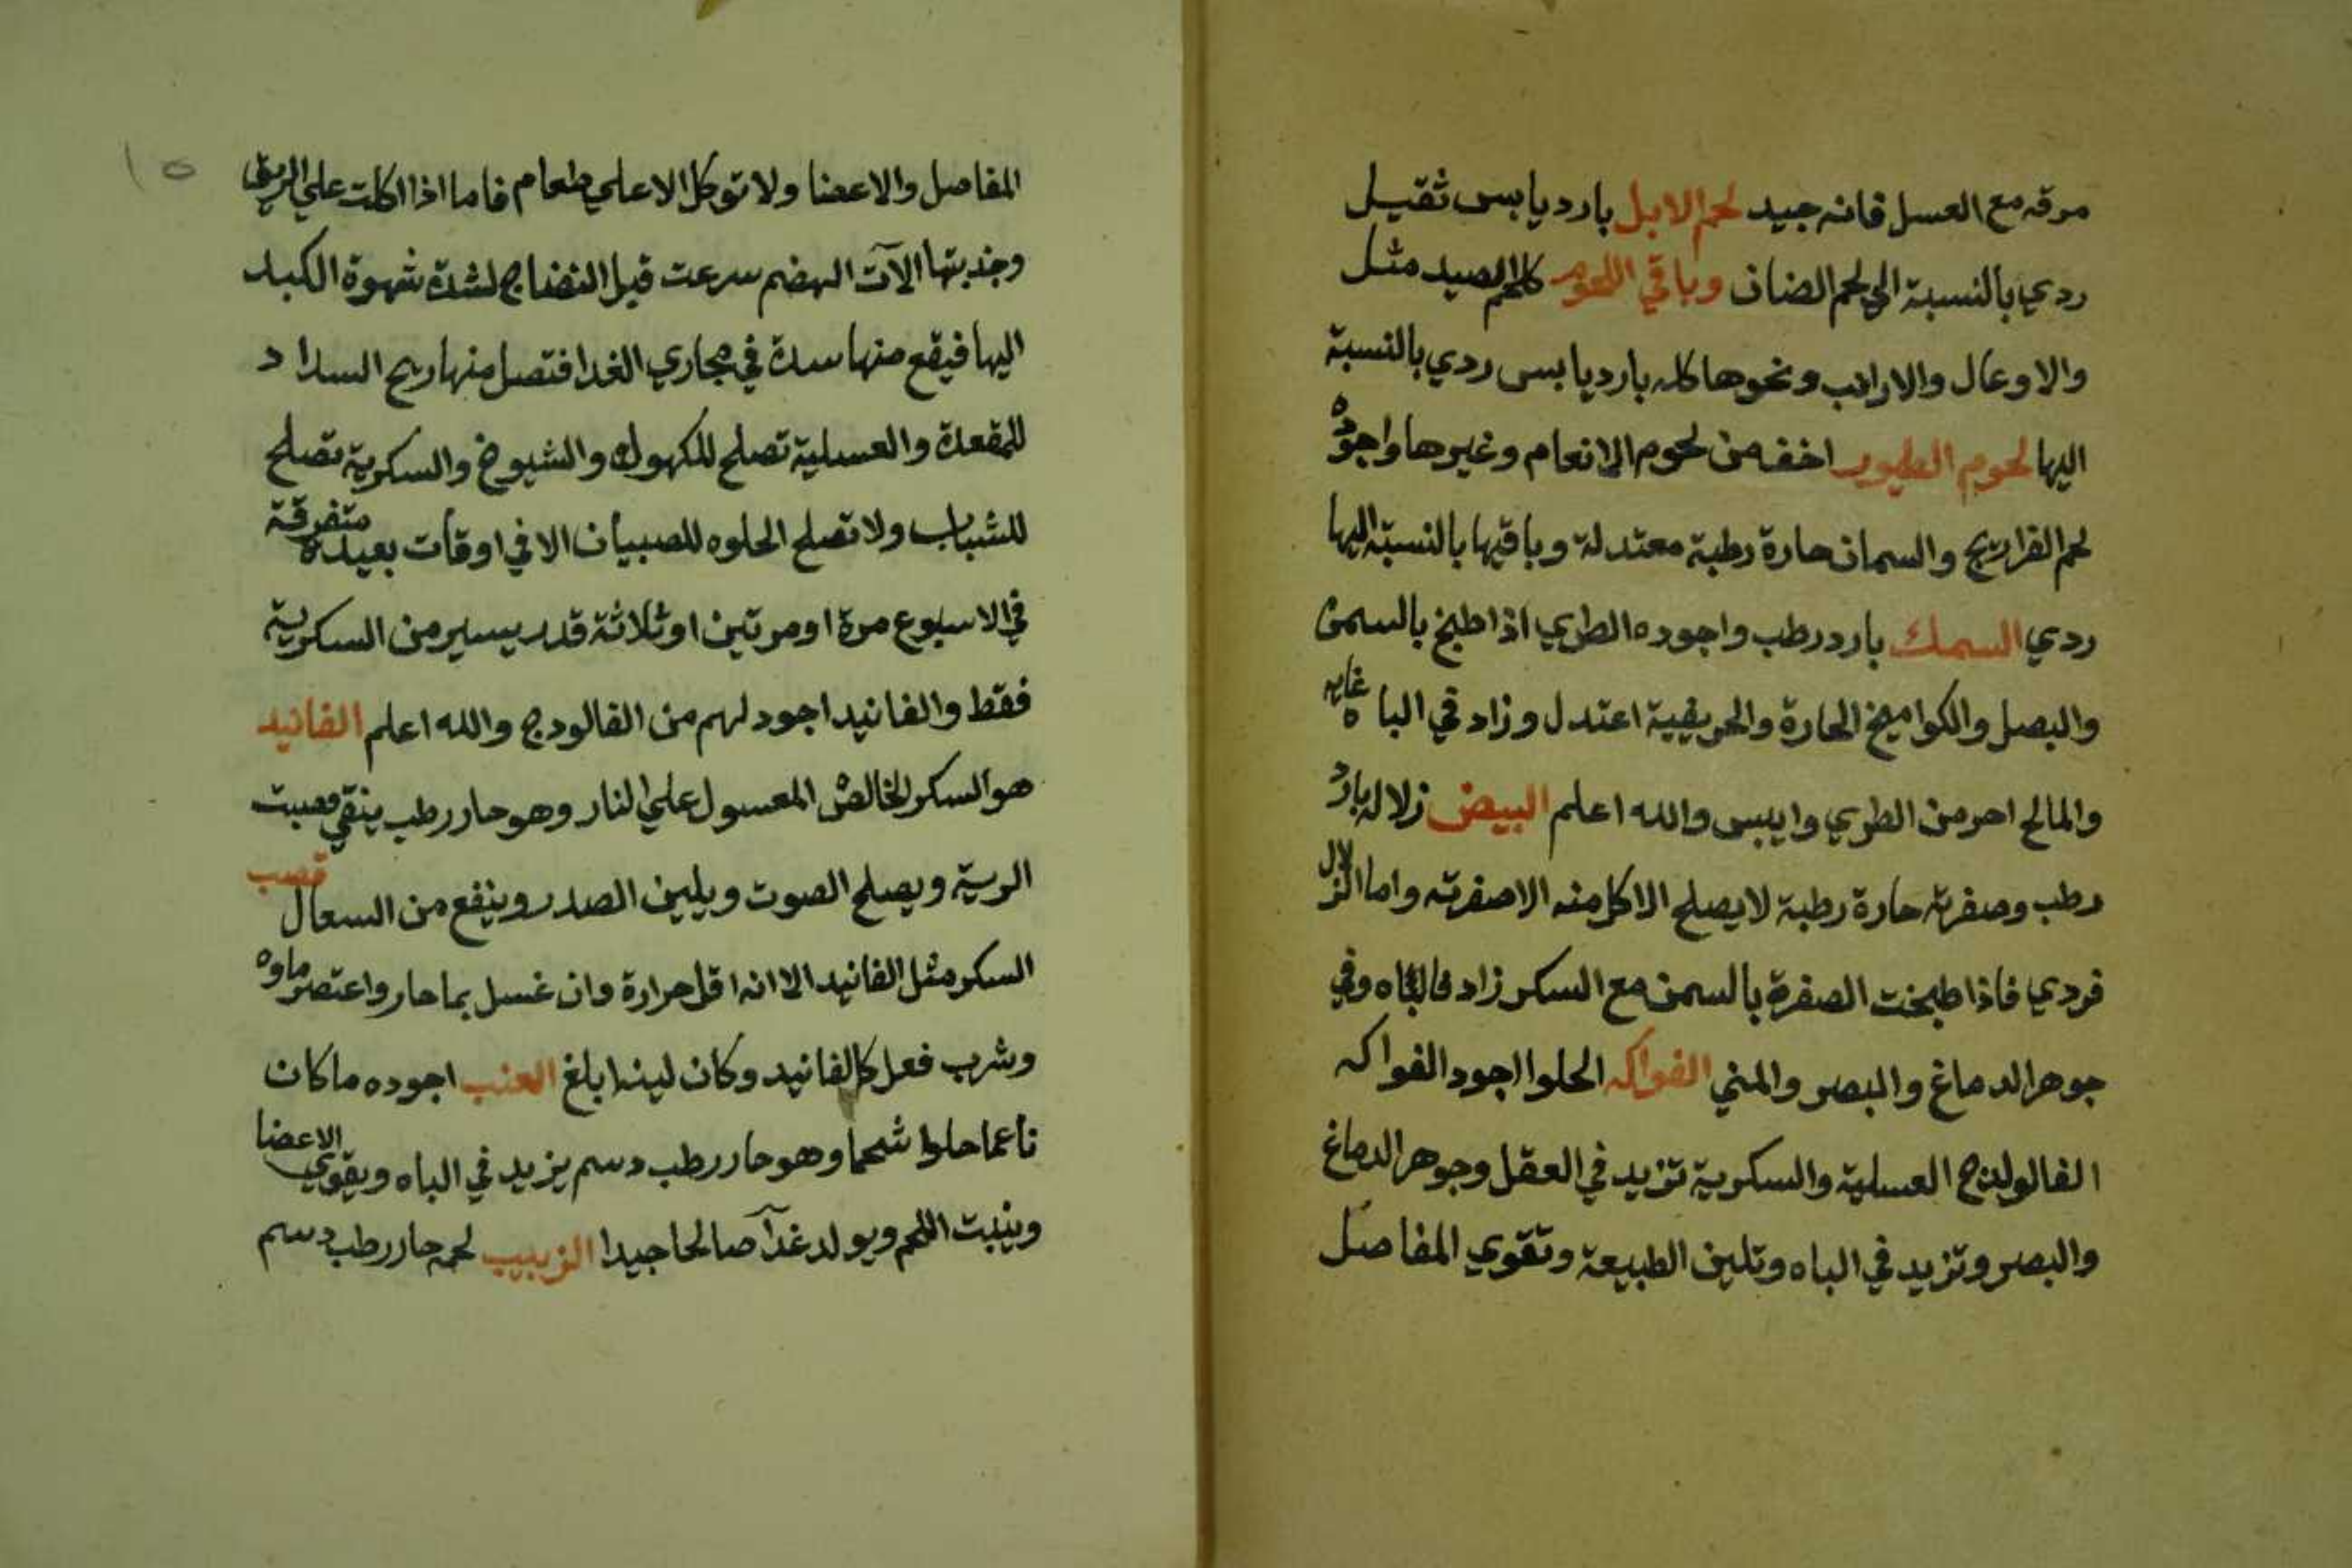 مرقه مع العسل فانه جيد لحم الابل بارد يابس ثقيل
ردي بالنسبة الي لحم الضان وباقي اللحوم كلحم الصيد مثل
والاوعال والارانب ونحوها كله بارد يابس ردي بالنسبة
اليها لحوم الطيور اخف من لحوم الانعام وغيرها واجوده
لحم الفراريج والسمان حارة رطبة معتدلة وباقيها بالنسبة اليها
ردي السمك بارد رطب واجوده الطري اذا طبخ بالسمن
والبصل والكواميخ الحارة والحريفية اعتدل وزاد في الباه غايه
والمالح احر من الطري وايبس والله اعلم البيض زلاله بارد
رطب وصفرته حارة رطبة لا يصلح الاكل منه الا صفرته واما الزلال
فردي فاذا طبخت الصفرة بالسمن مع السكر زاد في الباه وفي
جوهر الدماغ والبصر والمني الفواكه الحلوا اجود الفواكه
الفالوذج العسلية والسكرية تزيد في العقل وجوهر الدماغ
والبصر وتزيد في الباه وتلين الطبيعة وتقوي المفاصل
١٥
المفاصل والاعضا ولا توكل الا علي طعام فاما اذا اكلت علي الريق
وجذبتها الآت الهضم سرعت قبل النضاج لشدة شهوة الكبد
اليها فيقع منها سدة في مجاري الغدا فتصل منها ريح السداد
للمقعدة والعسلية تصلح للكهول والشيوخ والسكرية تصلح
للشباب ولا تصلح الحلوه للصبيان الا في اوقات بعيدة متفرقة
في الاسبوع مرة او مرتين او ثلاثة قدر يسير من السكرية
فقط والفانيد اجود لهم من الفالودج والله اعلم الفانيد
هو السكر الخالص المعسول علي النار وهو حار رطب ينقي قصبت
الرية ويصلح الصوت ويلين الصدر وينفع من السعال قصب
السكر مثل الفانيد الا انه اقل حرارة وان غسل بما حار واعتصر ماوه
وشرب فعل كالفانيد وكان لينه ابلغ العنب اجوده ما كان
ناعما حلوا شحما وهو حار رطب دسم يزيد في الباه ويقوي الاعضا
وينبت اللحم ويولد غدآ صالحا جيدا الزبيب لحمه حار رطب دسم